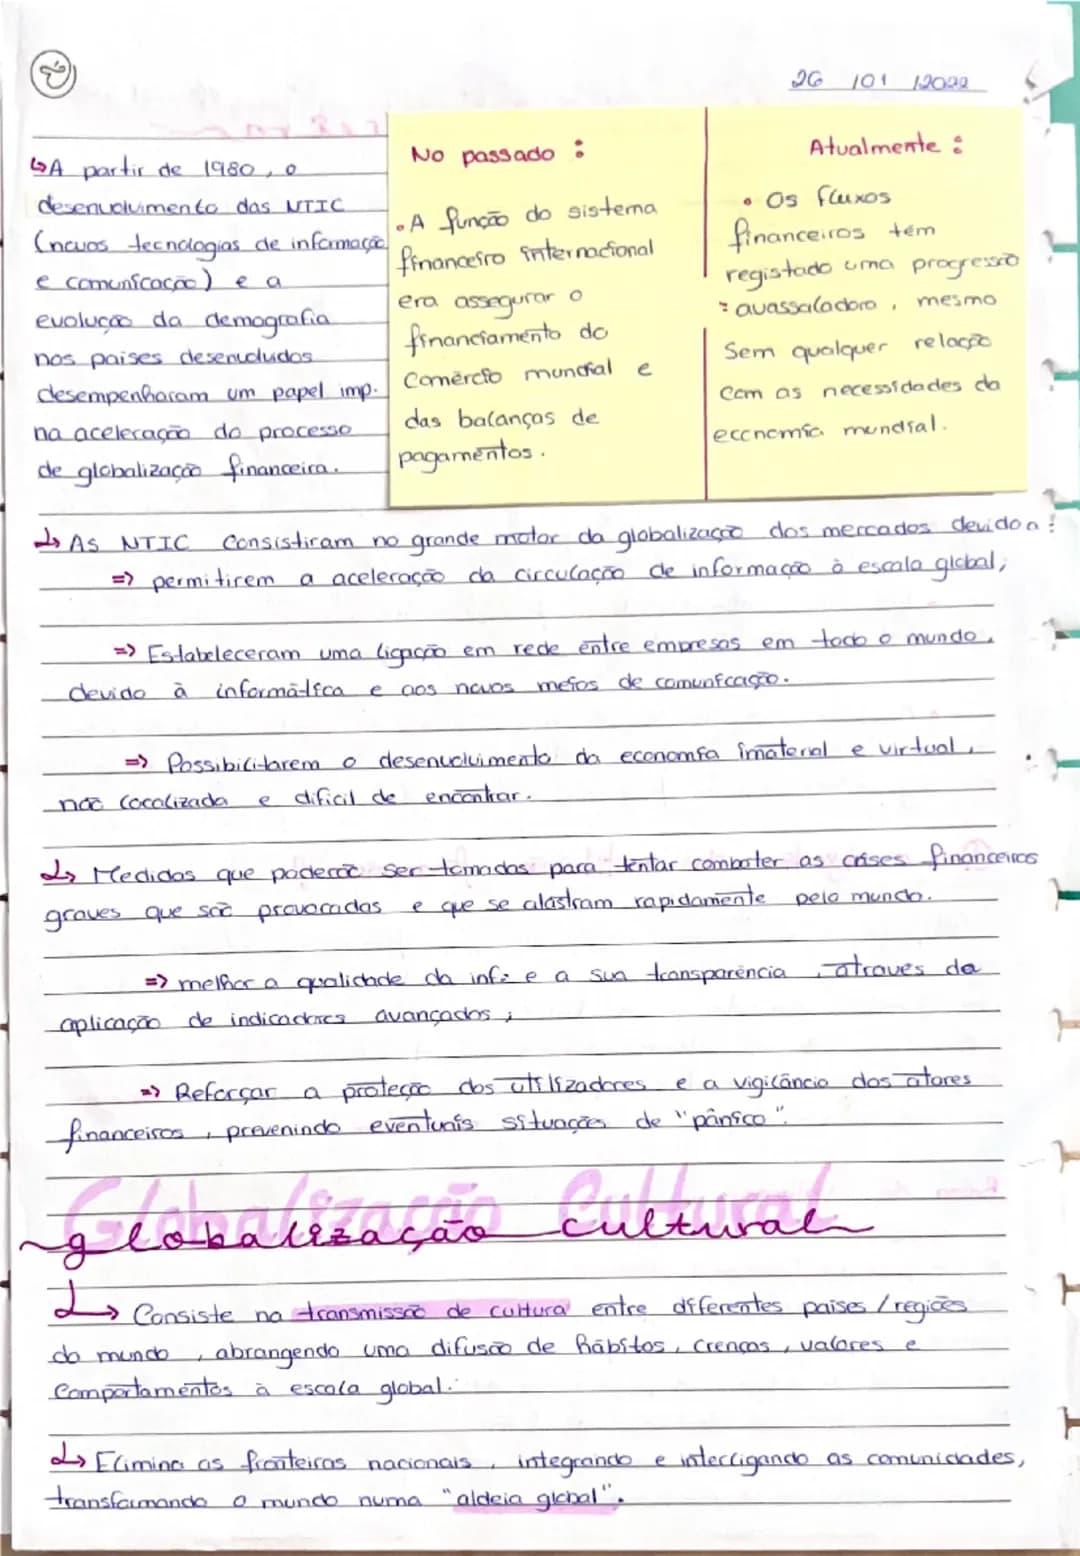 26 / 01 / 2022
↳ A partir de 1980, o
desenvolvimento das NTIC
(novas tecnologias de informação
e comunicação) e a
evolução da demografia
nos paises desenvoludos
desempenharam um papel imp.
na aceleração do processo
de globalização financeira.
No passado :
• A função do sistema
financeiro internacional
era assegurar o
financiamento do
comércio mundial e
das balanças de
pagamentos.
Atualmente :
• Os fluxos
financeiros têm
registado uma progressão
avassaladora, mesmo
sem qualquer relação
com as necessidades da
economia mundial.
↳ As NTIC consistiram no grande motor da globalização dos mercados devido a :
=> permitirem a aceleração da circulação de informação à escala global;
=> Estabeleceram uma ligação em rede entre empresas em todo o mundo,
devido à informática e aos novos meios de comunicação.
=> Possibilitarem o desenvolvimento da economia imaterial e virtual,
não localizada e dificil de encontrar.
↳ Medidas que poderão ser tomadas para tentar combater as crises financeiras
graves que são provocadas e que se alastram rapidamente pelo mundo.
=> melhor a qualidade da inf: e a sua transparência, atraves da
aplicação de indicadores avançados ;
=> Reforçar a proteção dos utilizadores e a vigilância dos atores
financeiros, prevenindo eventuais situações de "pânico".
Globalização Cultural
↳ Consiste na transmissão de cultura entre diferentes paises / regiões
do mundo, abrangendo uma difusão de hábitos, crenças, valores e
comportamentos à escala global.
↳ Elimina as fronteiras nacionais, integrando e interligando as comunidades,
transformando o mundo numa "aldeia global".